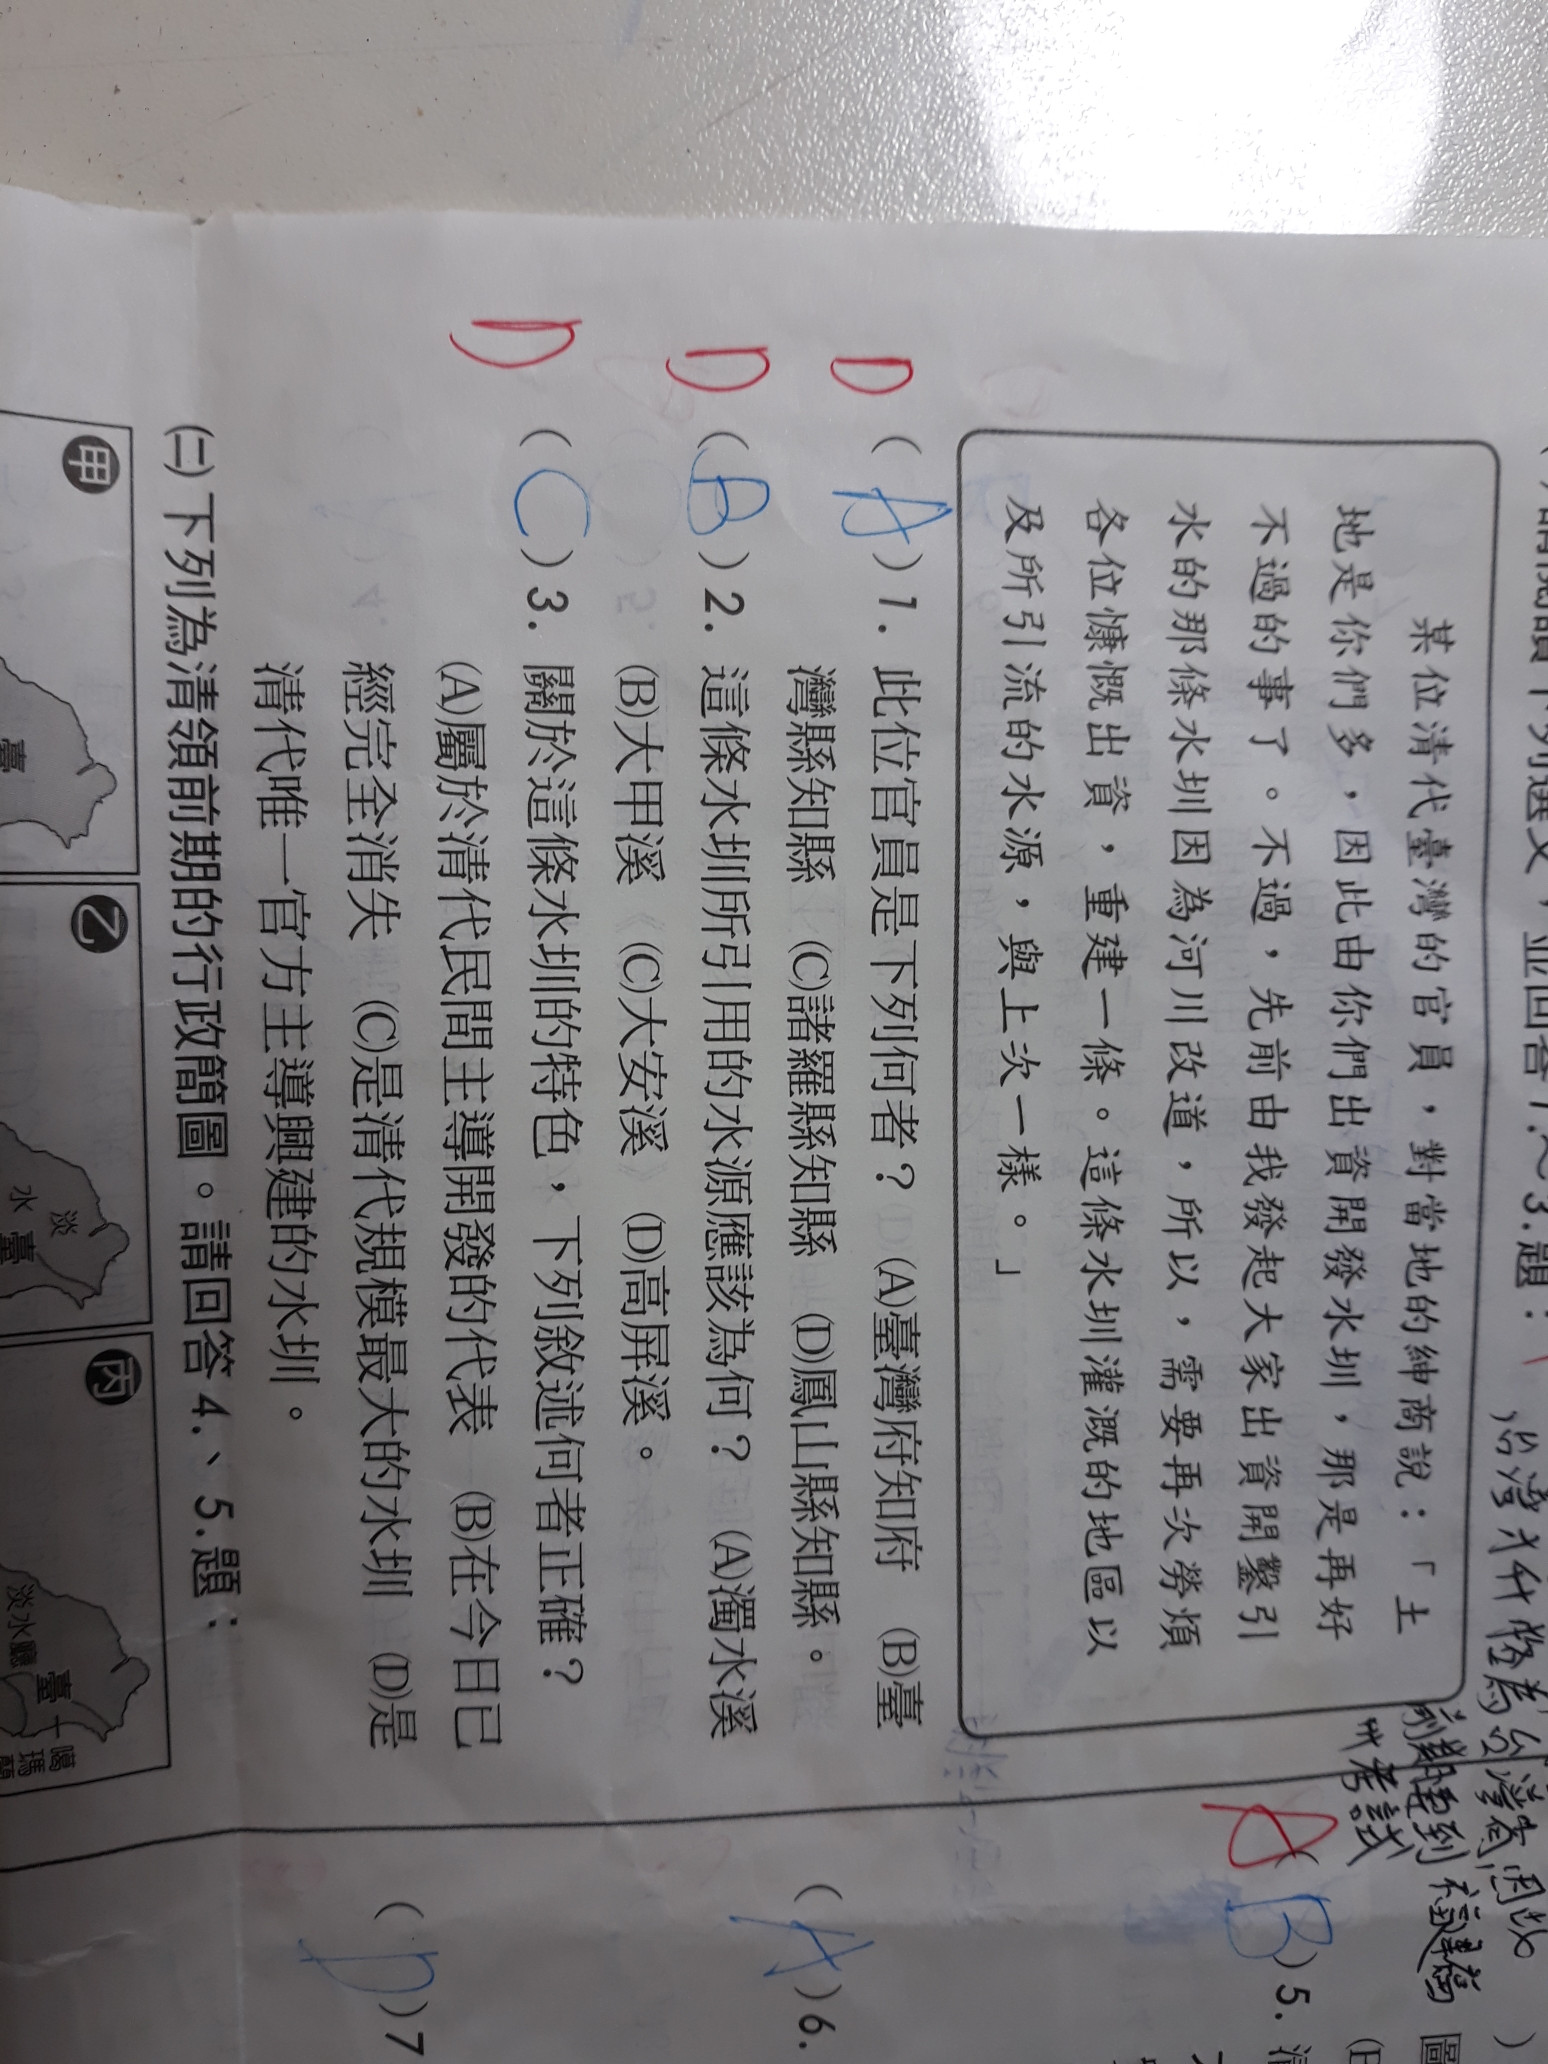 請閱讀下列選文，並回答1.～3.題：
某位清代臺灣的官員，對當地的紳商說：「土
地是你們多，因此由你們出資開發水圳，那是再好
不過的事了。不過，先前由我發起大家出資開鑿引
水的那條水圳因為河川改道，所以，需要再次勞煩
各位慷慨出資，重建一條。這條水圳灌溉的地區以
及所引流的水源，與上次一樣。」
D（A）1. 此位官員是下列何者？ (A)臺灣府知府 (B)臺
灣縣知縣 (C)諸羅縣知縣 (D)鳳山縣知縣。
D（B）2. 這條水圳所引用的水源應該為何？ (A)濁水溪
(B)大甲溪 (C)大安溪 (D)高屏溪。
D（C）3. 關於這條水圳的特色，下列敘述何者正確？
(A)屬於清代民間主導開發的代表 (B)在今日已
經完全消失 (C)是清代規模最大的水圳 (D)是
清代唯一官方主導興建的水圳。
(二)下列為清領前期的行政簡圖。請回答4.、5.題：
甲
臺
乙
淡
水 臺
丙
淡水廳 臺
噶瑪蘭
考試
圖
A（B）5.
（A）6.
（D）7